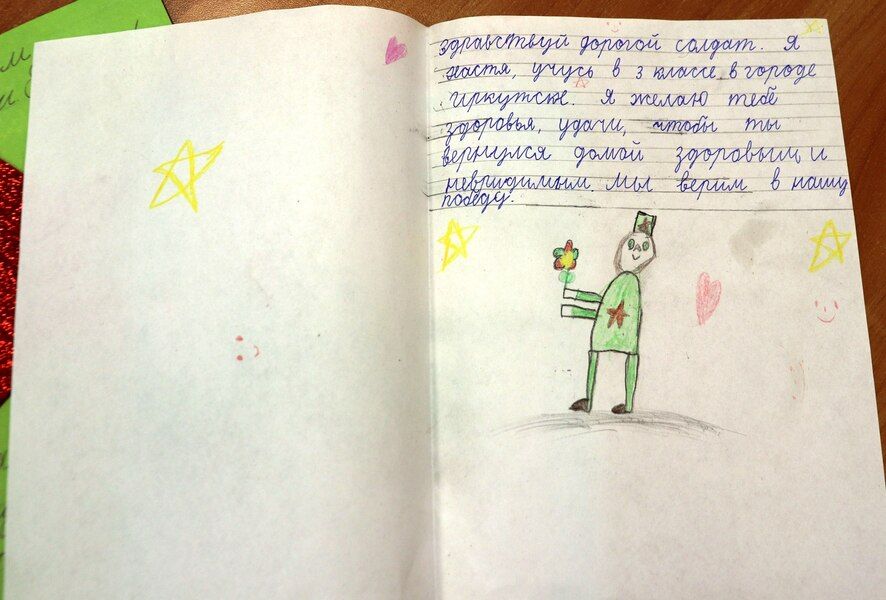 здравствуй дорогой солдат. Я
настя, учусь в 3 классе, в городе
иркутске. Я желаю тебе
здоровья, удачи, чтобы ты
вернулся домой здоровым, и
невридимым. Мы верим в нашу
победу.